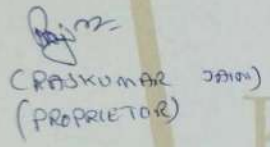 (RAJKUMAR JAIN)
(PROPRIETOR)